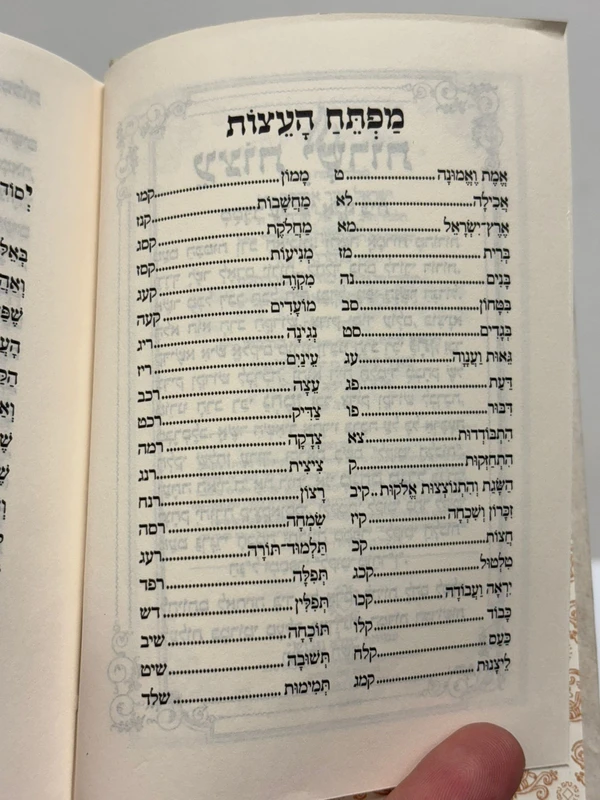 מַפְתֵּחַ הָעֵצוֹת
אֱמֶת וֶאֱמוּנָה ........ ט
אֲכִילָה ........ לא
אֶרֶץ־יִשְׂרָאֵל ........ מא
בְּרִית ........ מז
בָּנִים ........ נה
בִּטָּחוֹן ........ סב
בְּגָדִים ........ סט
גֵּאוּת וַעֲנָוָה ........ עג
דַּעַת ........ פג
דִּבּוּר ........ פו
הִתְבּוֹדְדוּת ........ צא
הִתְחַזְּקוּת ........ ק
הַשָּׂגַת וְהִתְנוֹצְצוּת אֱלֹקוּת .. קיב
זִכָּרוֹן וְשִׁכְחָה ........ קיז
חֲצוֹת ........ קכ
טִלְטוּל ........ קכג
יִרְאָה וַעֲבוֹדָה ........ קכו
כָּבוֹד ........ קלו
כַּעַס ........ קלח
לֵיצָנוּת ........ קמג
מָמוֹן ........ קמו
מַחֲשָׁבוֹת ........ קנז
מַחֲלֹקֶת ........ קסג
מְנִיעוֹת ........ קסז
מִקְוֶה ........ קעג
מוֹעֲדִים ........ קעה
נְגִינָה ........ ריג
עֵינַיִם ........ ריז
עֵצָה ........ רכב
צַדִּיק ........ רכט
צְדָקָה ........ רמה
צִיצִית ........ רנג
רָצוֹן ........ רנח
שִׂמְחָה ........ רסה
תַּלְמוּד־תּוֹרָה ........ רעג
תְּפִלָּה ........ רפד
תְּפִלִּין ........ דש
תּוֹכָחָה ........ שיב
תְּשׁוּבָה ........ שיט
תְּמִימוּת ........ שלד